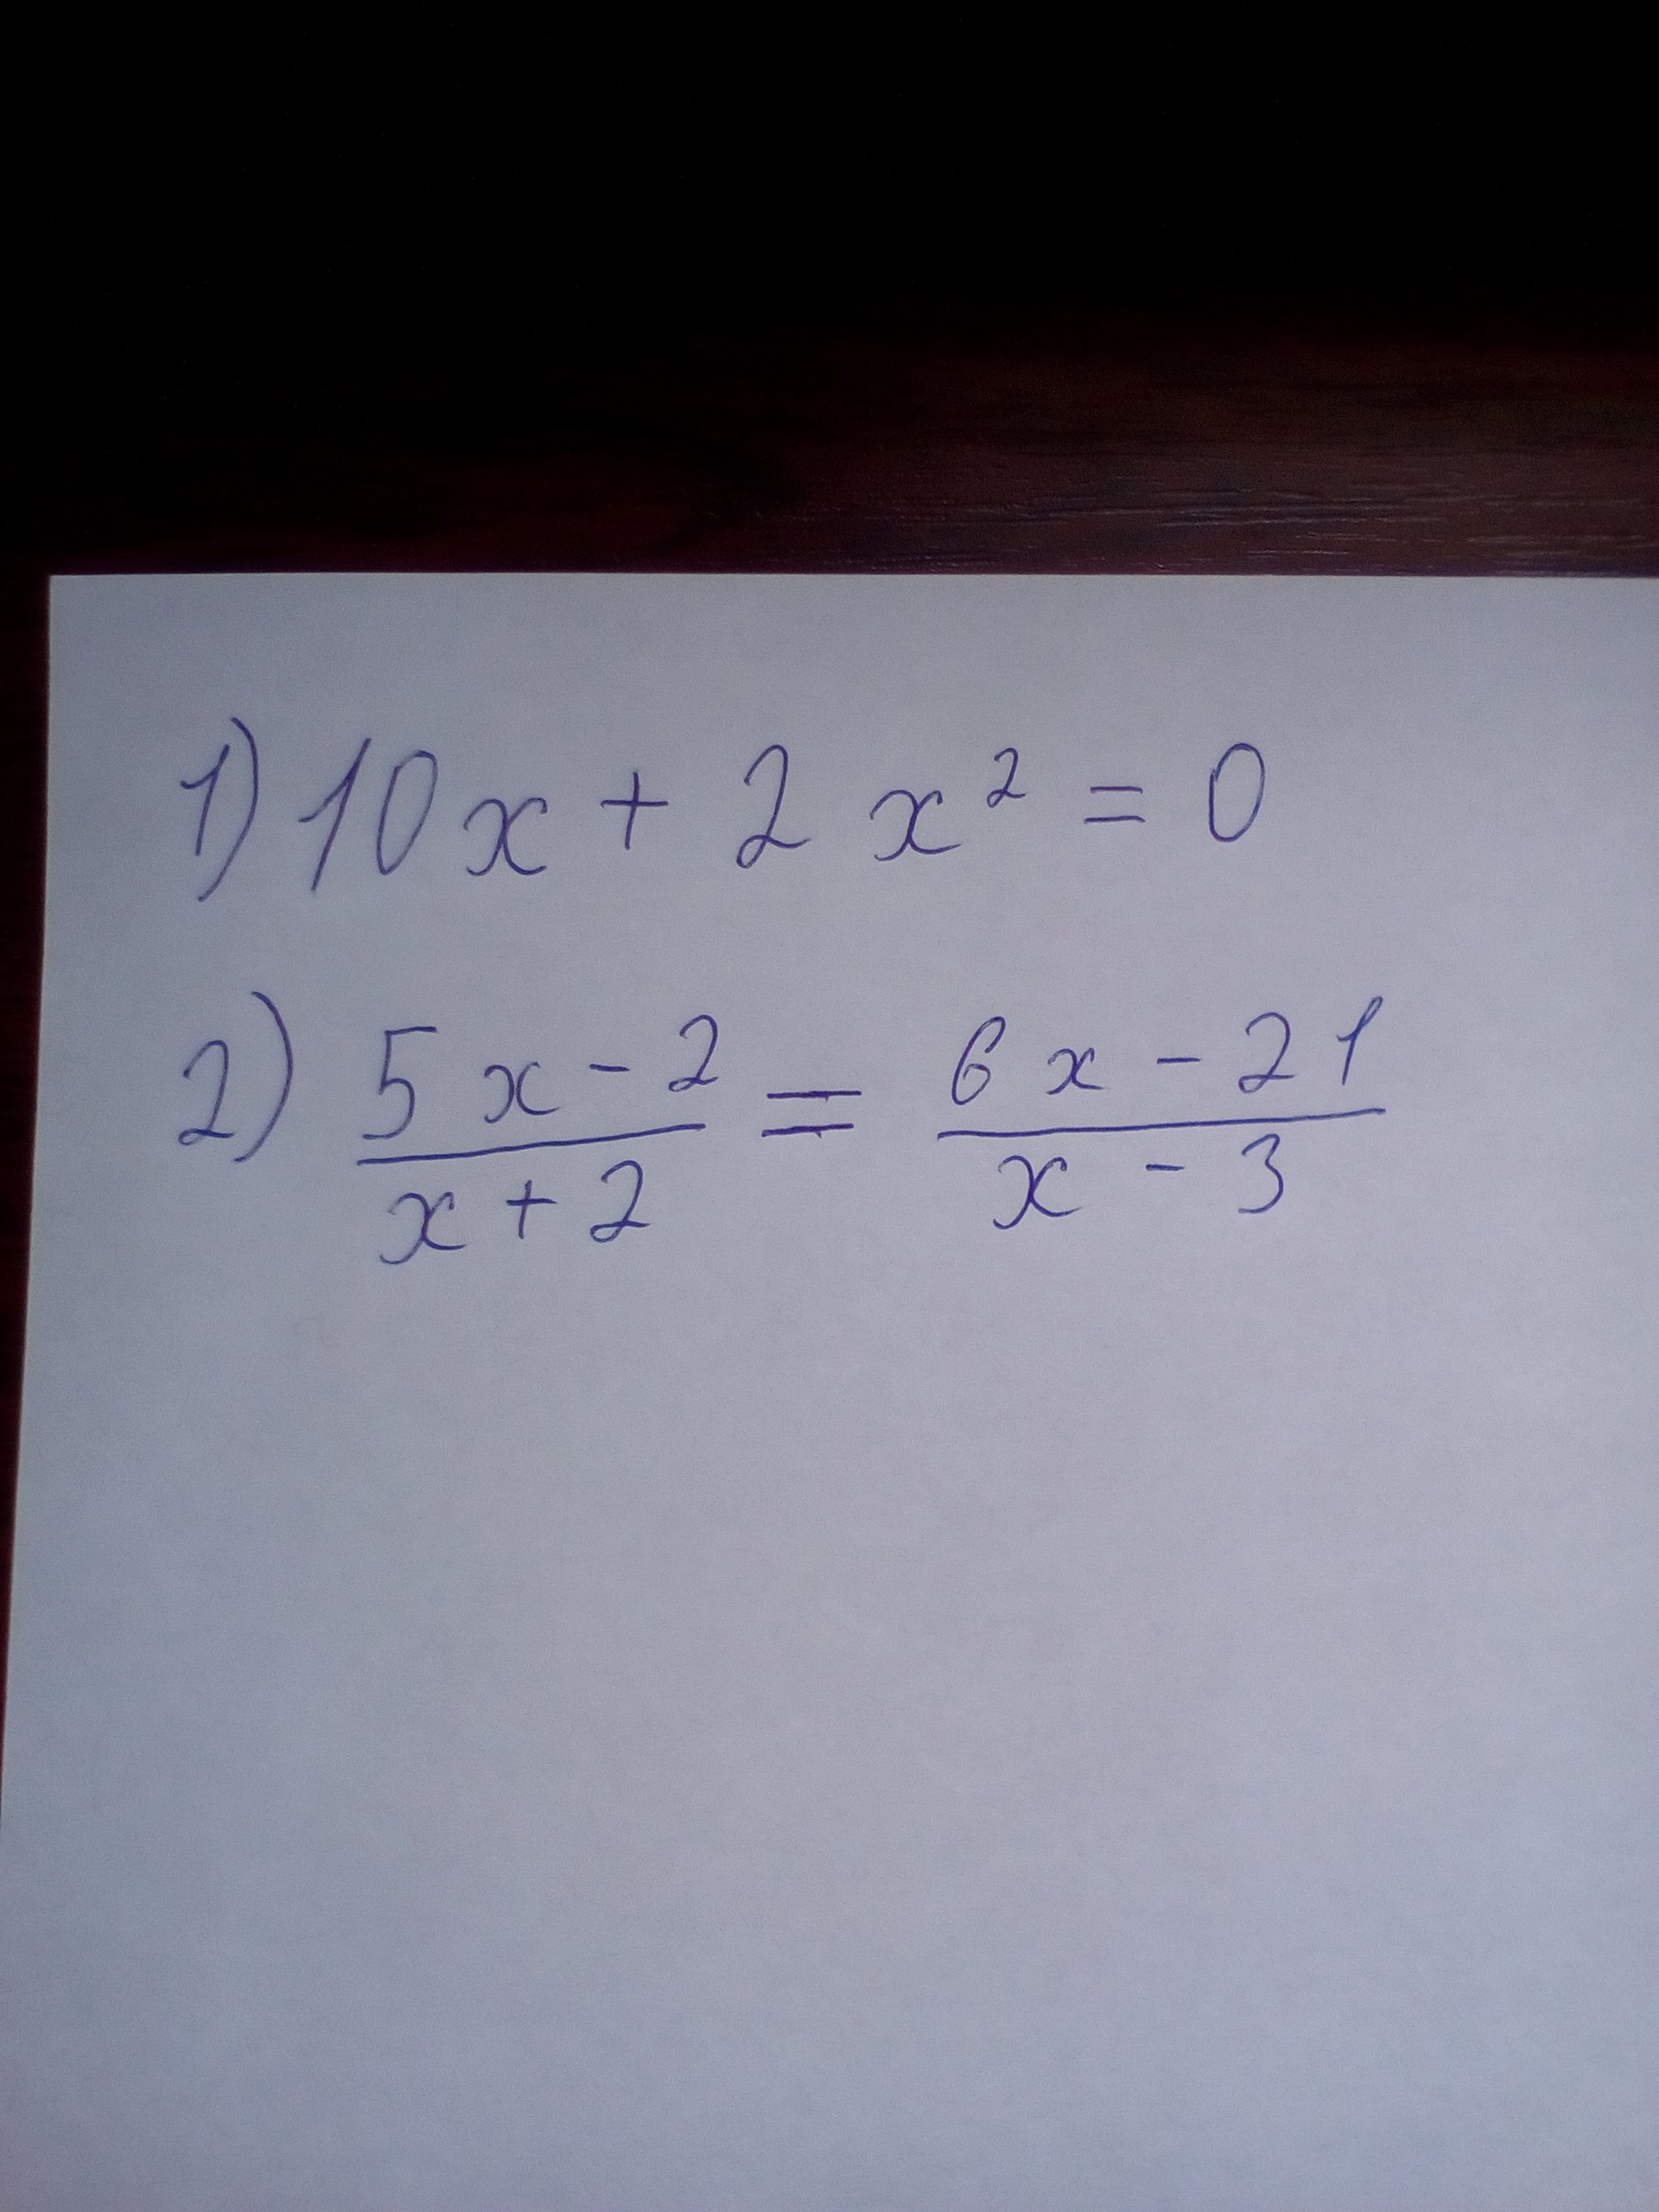 1) 10x + 2x² = 0
2) (5x - 2)/(x + 2) = (6x - 21)/(x - 3)